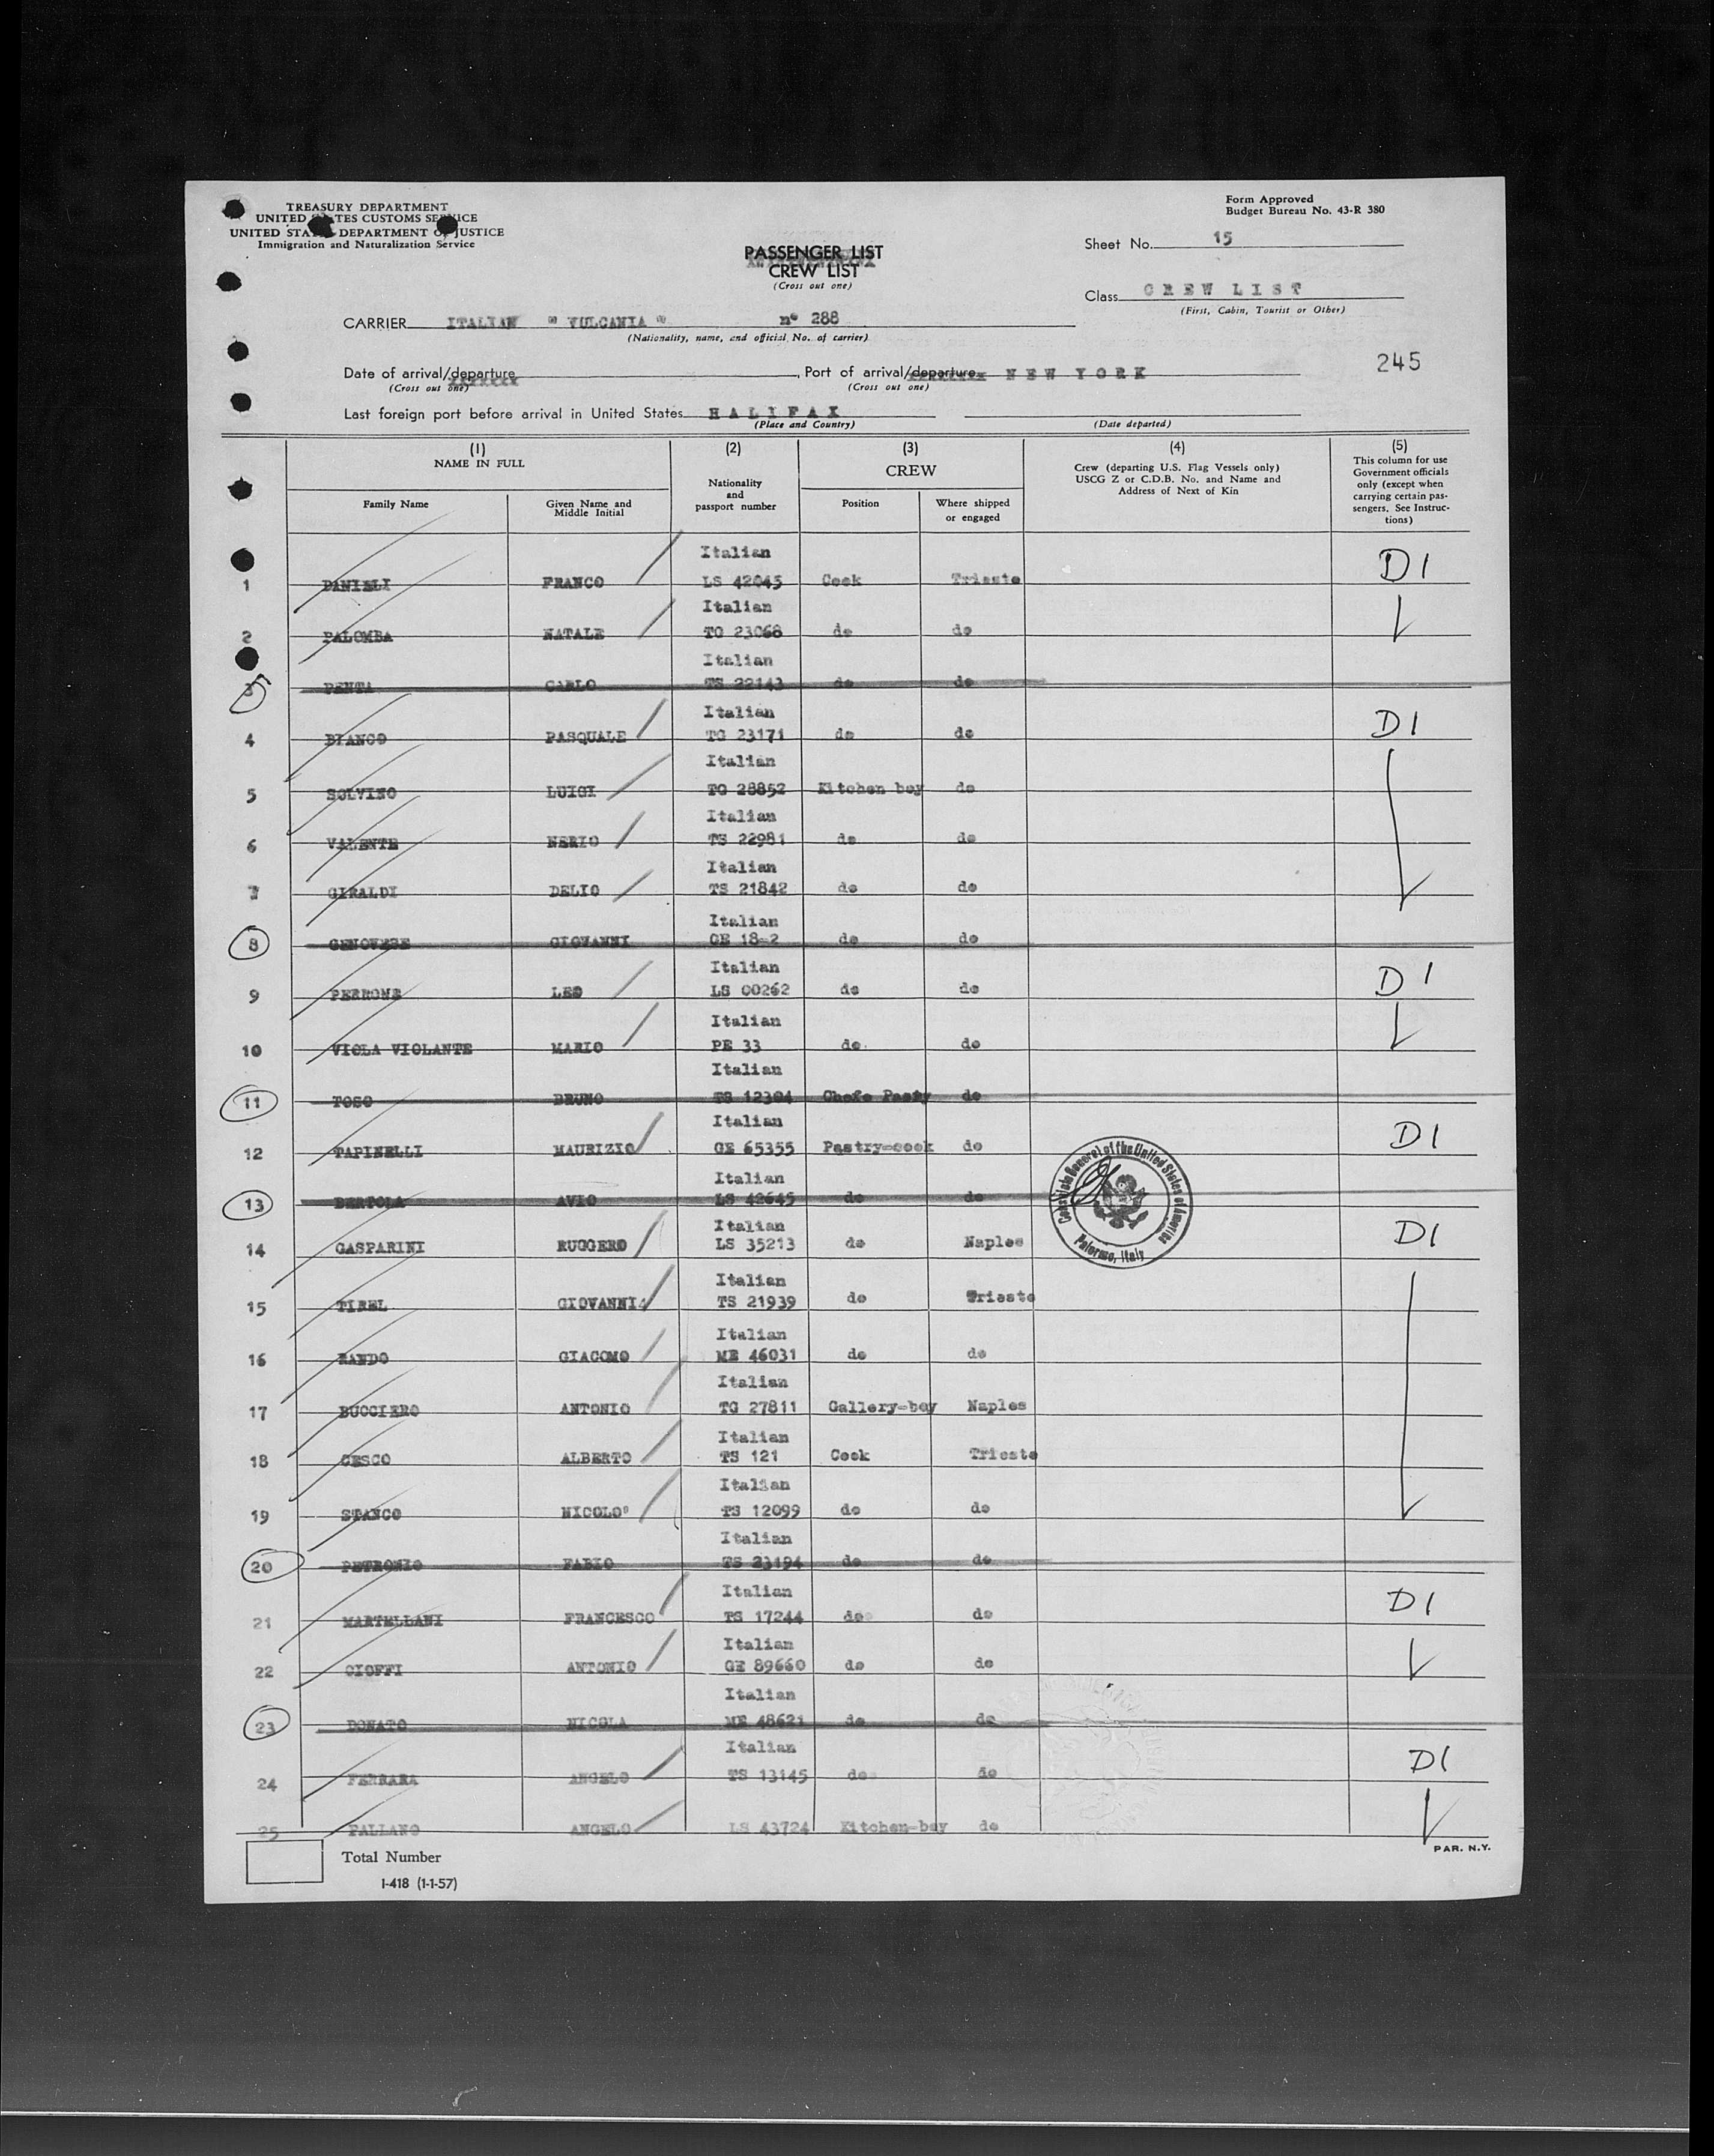 TREASURY DEPARTMENT
UNITED STATES CUSTOMS SERVICE
UNITED STATES DEPARTMENT OF JUSTICE
Immigration and Naturalization Service
Form Approved
Budget Bureau No. 43-R 380
PASSENGER LIST
CREW LIST
(Cross out one)
Sheet No. 15
Class CREW LIST
(First, Cabin, Tourist or Other)
CARRIER ITALIAN " VULCANIA " n° 288
(Nationality, name, and official No. of carrier)
Date of arrival/departure , Port of arrival/departure NEW YORK
(Cross out one) (Cross out one)
245
Last foreign port before arrival in United States HALIFAX
(Place and Country) (Date departed)
(1) NAME IN FULL
Family Name
Given Name and Middle Initial
(2)
Nationality and passport number
(3)
CREW
Position
Where shipped or engaged
(4)
Crew (departing U.S. Flag Vessels only)
USCG Z or C.D.B. No. and Name and
Address of Next of Kin
(5)
This column for use
Government officials
only (except when
carrying certain pas-
sengers. See Instruc-
tions)
Italian
1 DANIELI FRANCO LS 42045 Cook Trieste D1
Italian
2 PALOMBA NATALE TG 23068 do do
Italian
3 PENTA CARLO TS 22143 do do
Italian
4 BIANCO PASQUALE TG 23171 do do D1
Italian
5 SOLVINO LUIGI TG 28852 Kitchen boy do
Italian
6 VALENTE NERIO TS 22981 do do
Italian
7 GIRALDI DELIO TS 21842 do do
Italian
8 GENOVESE GIOVANNI GE 18-2 do do
Italian
9 PERRONE LEO LS 00262 do do D1
Italian
10 VIOLA VIOLANTE MARIO PE 33 do do
Italian
11 TOSO BRUNO TS 12304 Chefe Pasty do
Italian
12 TAPINELLI MAURIZIO GE 65355 Pastry-cook do D1
Italian
13 BERTOLA AVIO LS 42645 do do
Italian
14 GASPARINI RUGGERO LS 35213 do Naples D1
Italian
15 TIREL GIOVANNI TS 21939 do Trieste
Italian
16 RANDO GIACOMO ME 46031 do do
Italian
17 BUCCIERO ANTONIO TG 27811 Gallery-boy Naples
Italian
18 CESCO ALBERTO TS 121 Cook Trieste
Italian
19 STANCO NICOLO' TS 12099 do do
Italian
20 PETRONIO FABIO TS 23194 do do
Italian
21 MARTELLANI FRANCESCO TS 17244 do do D1
Italian
22 CIOFFI ANTONIO GE 89660 do do
Italian
23 DONATO NICOLA ME 48621 do do
Italian
24 FERRARA ANGELO TS 13145 do do D1
25 PALLANO ANGELO LS 43724 Kitchen-boy do
Consulate General of the United States of America
Palermo, Italy
PAR. N.Y.
Total Number
I-418 (1-1-57)